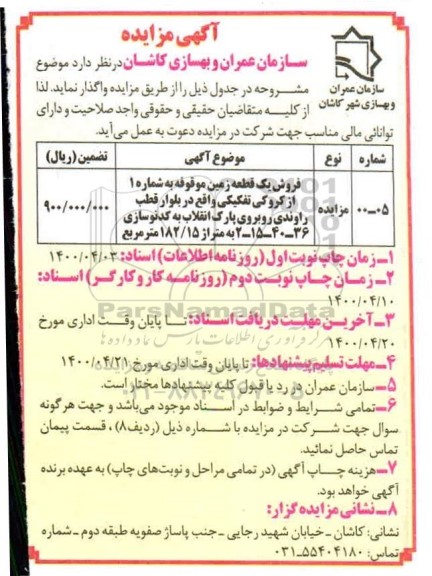 آگهی مزایده
سازمان عمران و بهسازی کاشان درنظر دارد موضوع
مشروحه در جدول ذیل را از طریق مزایده واگذار نماید. لذا
از کلیه متقاضیان حقیقی و حقوقی واجد صلاحیت و دارای
توانائی مالی مناسب جهت شرکت در مزایده دعوت به عمل می‌آید.
سازمان عمران
و بهسازی شهر کاشان
شماره نوع موضوع آگهی تضمین (ریال)
۰۵-۰۰ مزایده فروش یک قطعه زمین موقوفه به شماره ۱
از کروکی تفکیکی واقع در بلوار قطب
راوندی روبروی پارک انقلاب به کد نوسازی
۳۶-۴۰-۱۵-۲ به متراژ ۱۸۲/۱۵ مترمربع ۹۰۰/۰۰۰/۰۰۰
۱- زمان چاپ نوبت اول (روزنامه اطلاعات) اسناد: ۱۴۰۰/۰۴/۰۳
۲- زمان چاپ نوبت دوم (روزنامه کار و کارگر) اسناد:
۱۴۰۰/۰۴/۱۰
۳- آخرین مهلت دریافت اسناد: تا پایان وقت اداری مورخ
۱۴۰۰/۰۴/۲۰
۴- مهلت تسلیم پیشنهادها: تا پایان وقت اداری مورخ ۱۴۰۰/۰۴/۲۱
۵- سازمان عمران در رد یا قبول کلیه پیشنهادها مختار است.
۶- تمامی شرایط و ضوابط در اسناد موجود می‌باشد و جهت هرگونه
سوال جهت شرکت در مزایده با شماره ذیل (ردیف۸) ، قسمت پیمان
تماس حاصل نمائید.
۷- هزینه چاپ آگهی (در تمامی مراحل و نوبت‌های چاپ) به عهده برنده
آگهی خواهد بود.
۸- نشانی مزایده گزار:
نشانی: کاشان - خیابان شهید رجایی - جنب پاساژ صفویه طبقه دوم - شماره
تماس: ۵۵۴۰۴۱۸۰-۰۳۱
ParsNamadData